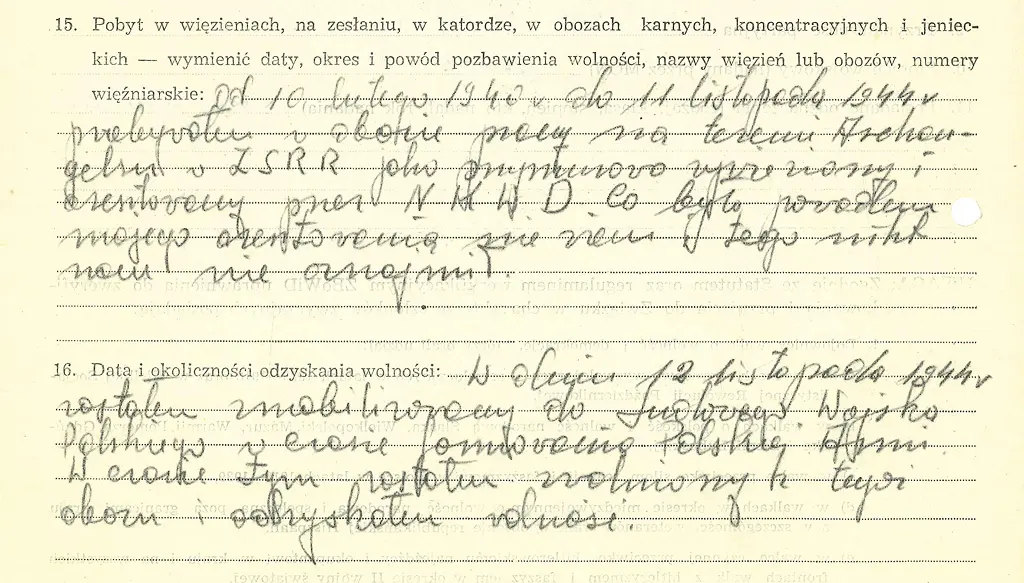 15. Pobyt w więzieniach, na zesłaniu, w katordze, w obozach karnych, koncentracyjnych i jeniec-
kich — wymienić daty, okres i powód pozbawienia wolności, nazwy więzień lub obozów, numery
więźniarskie: Od 10 lutego 1940 r do 11 listopada 1944 r
przebywałem w obozie pracy na terenie Archan-
gelska w ZSRR jako przymusowo wywieziony i
aresztowany przez N K W D. Co było powodem
mojego aresztowania nie wiem i tego nikt
nam nie oznajmił.
16. Data i okoliczności odzyskania wolności: W dniu 12 listopada 1944 r
zostałem zmobilizowany do Ludowego Wojska
Polskiego w czasie formowania Polskiej Armii.
W czasie tym zostałem zwolniony z tego
obozu i odzyskałem wolność.